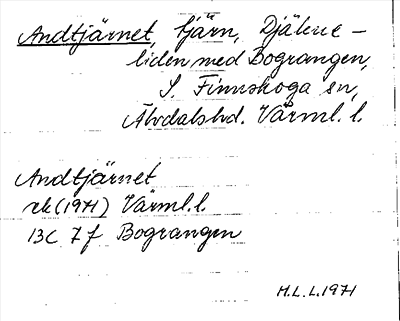 Andtjärnet, tjärn, Djäkne-
liden med Bograngen,
S. Finnskoga sn,
Älvdalshd. Värml. l.
Andtjärnet
rk (1971) Värml. l.
13C 7f Bograngen
M.L.L. 1971